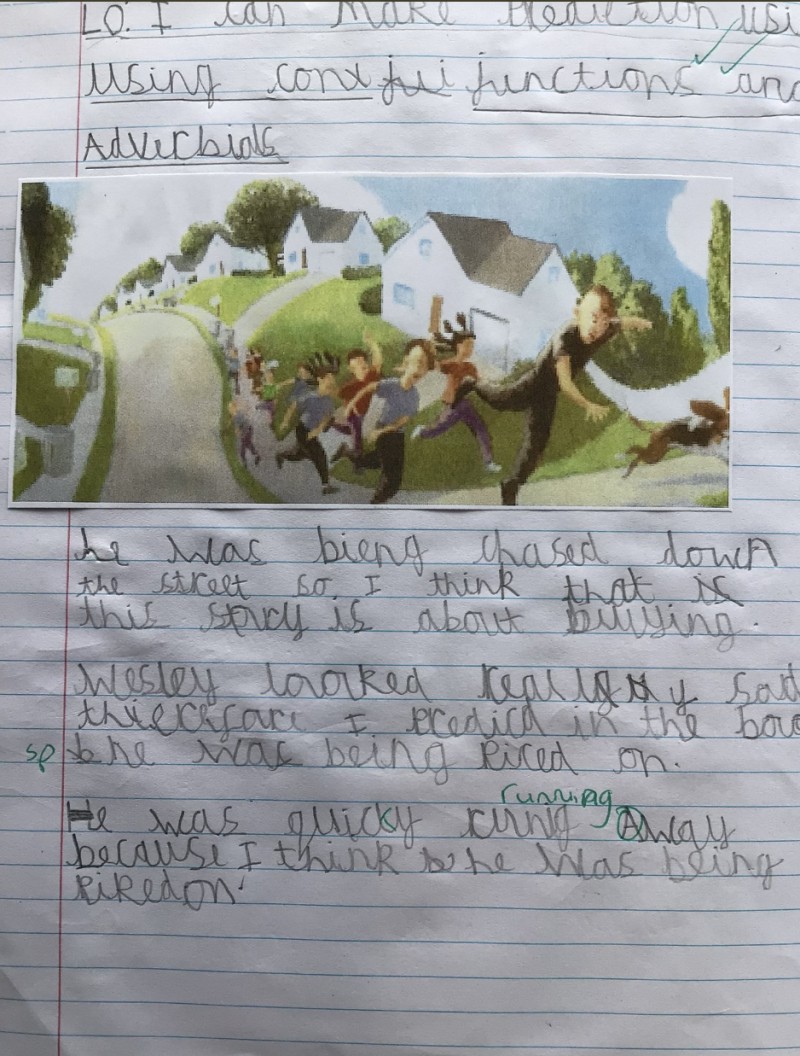 LO: I can make prediction usi
using conxfui junctions and
Adverbials
he was bieng chased down
the street so I think that is
this story is about bullying.
Wesley looked really sad
thierefore I predicd in the boo
sp he was being piced on.
running
He was quicky rung Away
because I think he was being
pikedon.